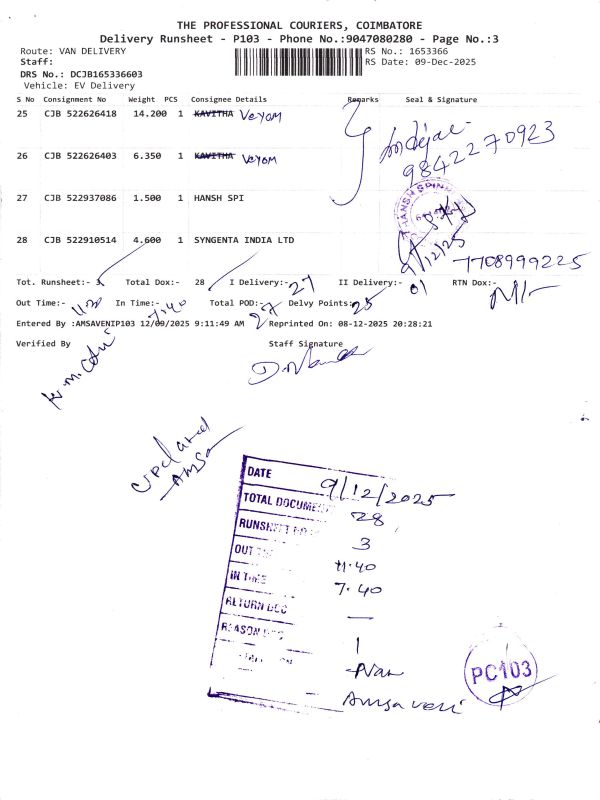 THE PROFESSIONAL COURIERS, COIMBATORE
Delivery Runsheet - P103 - Phone No.:9047080280 - Page No.:3
Route: VAN DELIVERY RS No.: 1653366
Staff: RS Date: 09-Dec-2025
DRS No.: DCJB165336603
Vehicle: EV Delivery
S No Consignment No Weight PCS Consignee Details Remarks Seal & Signature
25 CJB 522626418 14.200 1 KAVITHA Veyom
9842270923
26 CJB 522626403 6.350 1 KAVITHA Veyom
27 CJB 522937086 1.500 1 HANSH SPI
HANSH SPINN
28 CJB 522910514 4.600 1 SYNGENTA INDIA LTD
9/12/25
7708999225
Tot. Runsheet:- 3 Total Dox:- 28 I Delivery:- 27 II Delivery:- 01 RTN Dox:- Nil
Out Time:- In Time:- 7.40 Total POD:- 27 Delvy Points:- 25
Entered By :AMSAVENIP103 12/09/2025 9:11:49 AM Reprinted On: 08-12-2025 20:28:21
Verified By Staff Signature
Updated
Amsa
DATE 9/12/2025
TOTAL DOCUMENT 28
RUNSHEET 3
OUT 11.40
IN TIME 7.40
RETURN DOC —
REASON DOC 1
Amsaveni
PC103